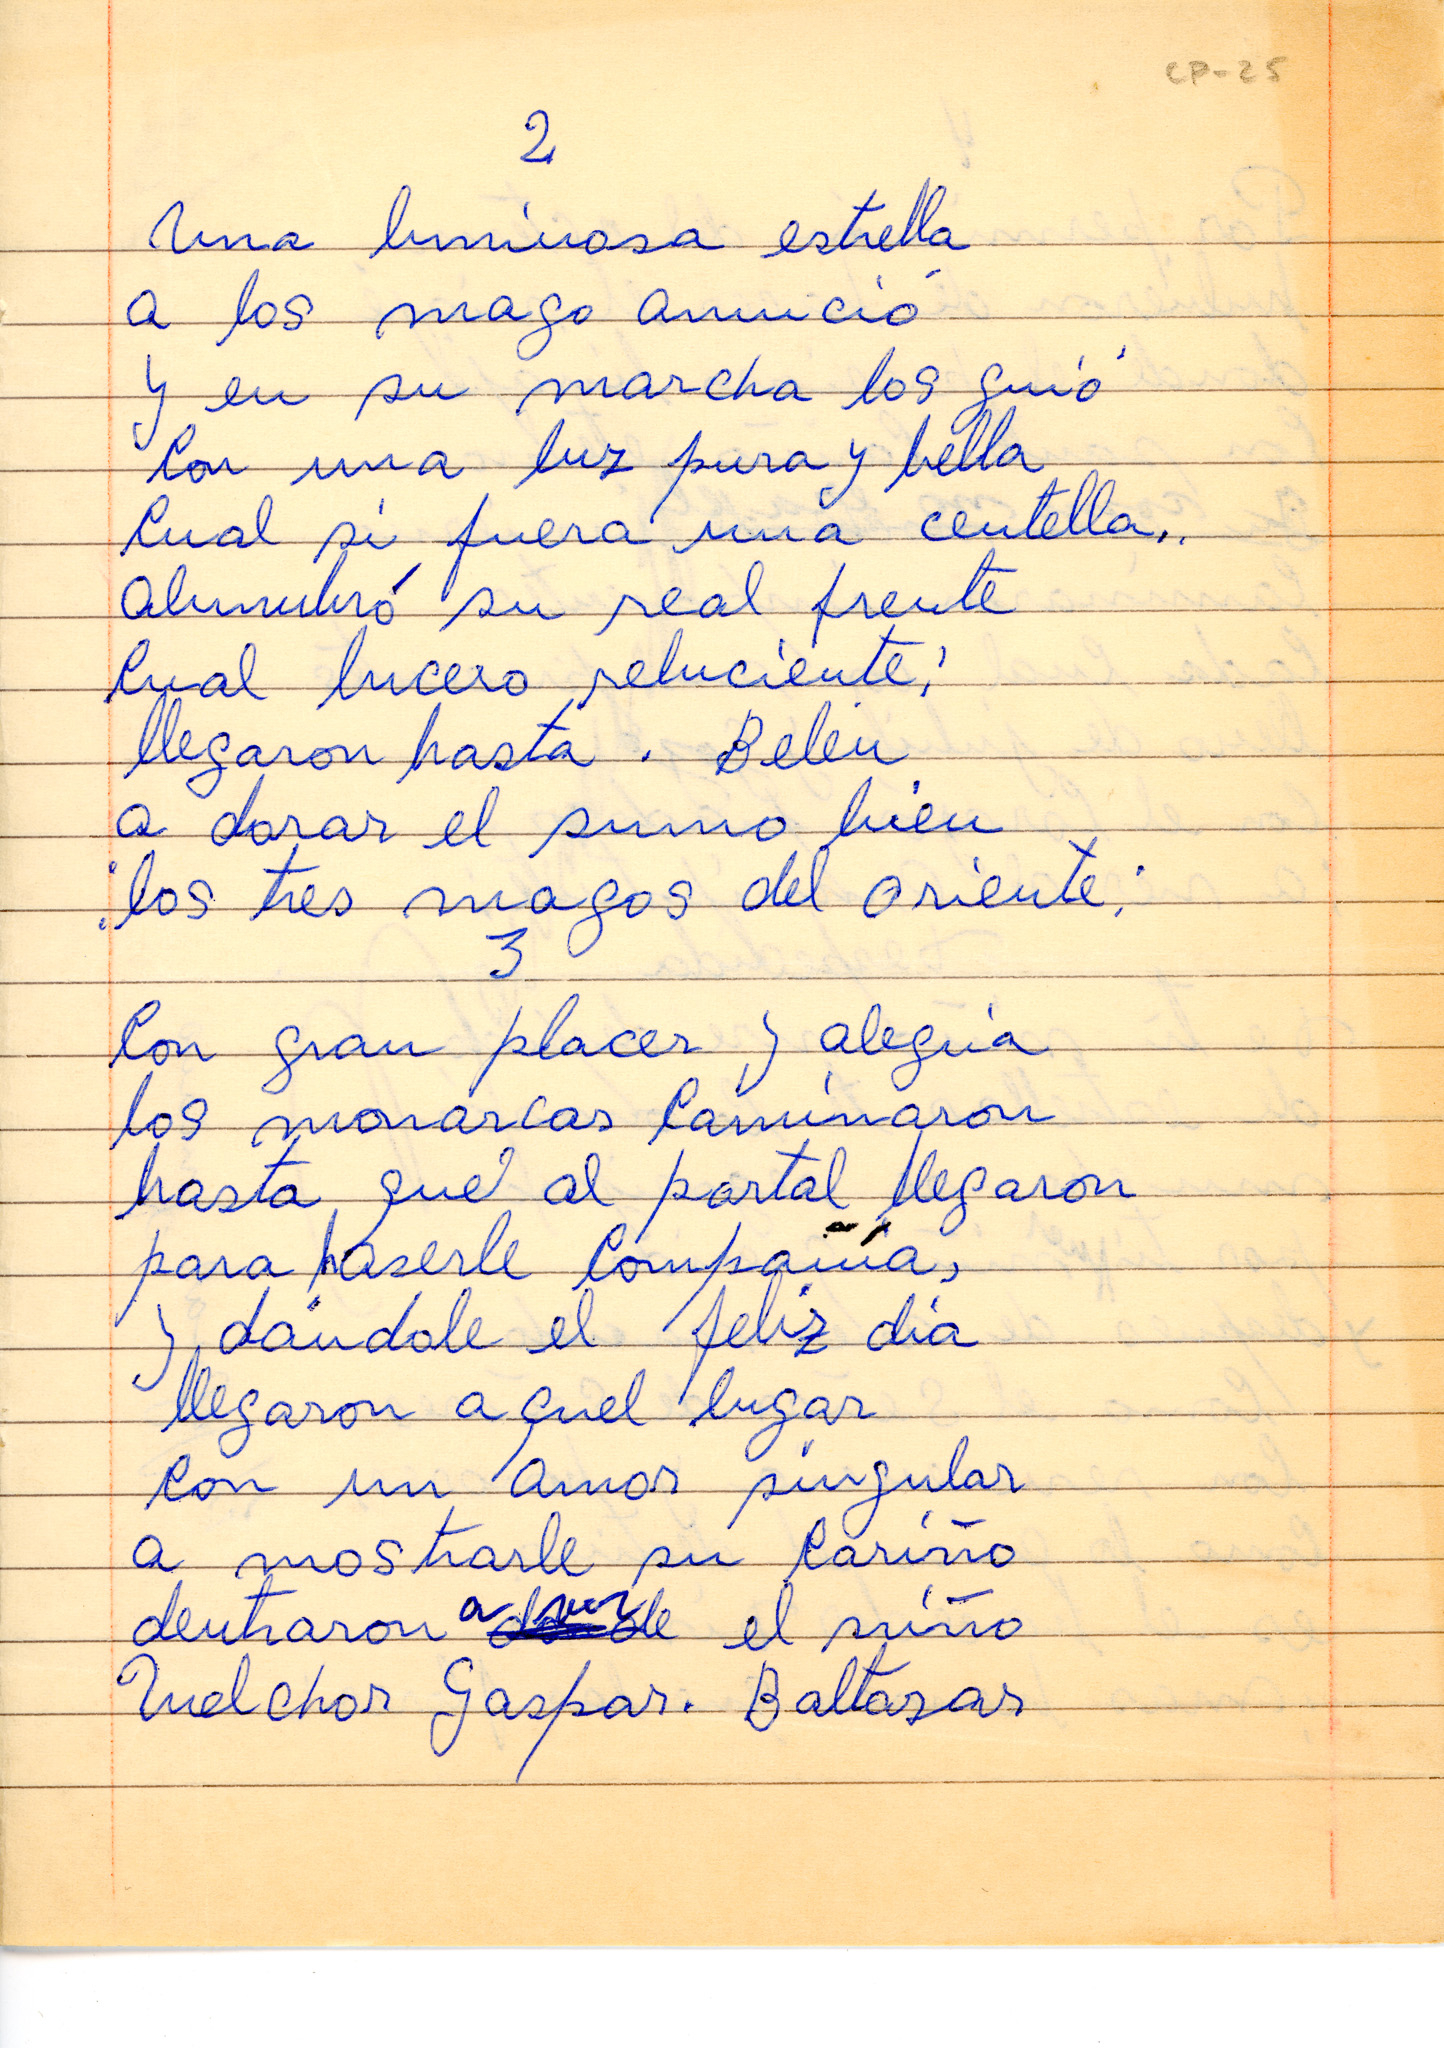 CP-25
2
Una luminosa estrella
a los mago anunció
y en su marcha los guió
Con una luz pura y bella
Cual si fuera una centella..
alumubró su real frente
Cual lucero reluciente;
llegaron hasta. Belén
a dorar el sumo bien
:los tres magos del oriente:
3
Con gran placer y alegria
los monarcas Caminaron
hasta qué al portal llegaron
para haserle Compañía,
y dándole el feliz día
llegaron aquel lugar
Con un amor singular
a mostrarle su Cariño
dentraron a ver el niño
Melchor Gaspar. Baltazar